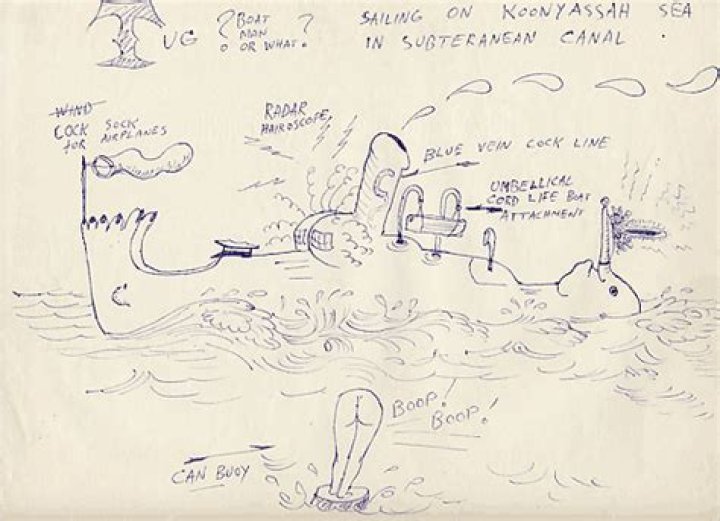 UG ? BOAT MAN OR WHAT. ?
SAILING ON KOONYASSAH SEA
IN SUBTERANEAN CANAL .
WIND
COCK SOCK
FOR AIRPLANES
RADAR
HAIROSCOPE
BLUE VEIN COCK LINE
UMBELLICAL
CORD LIFE BOAT
ATTACHMENT
BOOP!
BOOP!
CAN BUOY